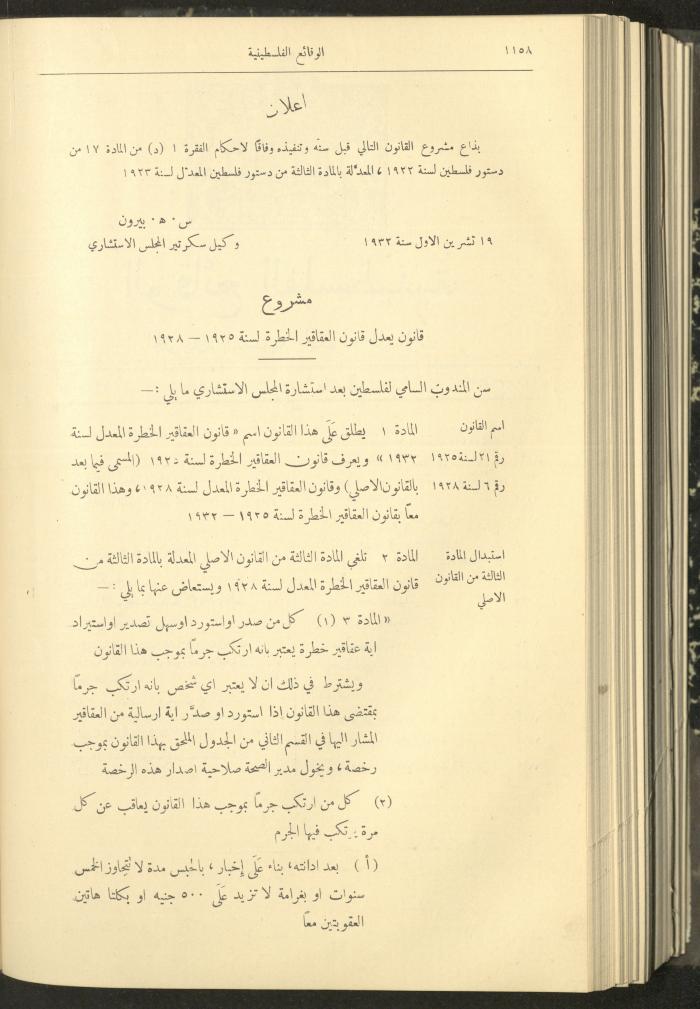 ١١٥٨
الوقائع الفلسطينية
اعلان
يذاع مشروع القانون التالي قبل سنّه وتنفيذه وفاقًا لاحكام الفقرة ١ (د) من المادة ١٧ من
دستور فلسطين لسنة ١٩٢٢، المعدّلة بالمادة الثالثة من دستور فلسطين المعدّل لسنة ١٩٢٣
س٠ ه٠ بيرون
١٩ تشرين الاول سنة ١٩٣٢
وكيل سكرتير المجلس الاستشاري
مشروع
قانون يعدل قانون العقاقير الخطرة لسنة ١٩٢٥ — ١٩٢٨
سن المندوب السامي لفلسطين بعد استشارة المجلس الاستشاري ما يلي :—
اسم القانون
رقم ٢١ لسنة ١٩٢٥
رقم ٦ لسنة ١٩٢٨
المادة ١ يطلق عَلَى هذا القانون اسم « قانون العقاقير الخطرة المعدل لسنة
١٩٣٢ » ويعرف قانون العقاقير الخطرة لسنة ١٩٢٥ (المسمى فيما بعد
بالقانون الاصلي) وقانون العقاقير الخطرة المعدل لسنة ١٩٢٨، وهذا القانون
معًا بقانون العقاقير الخطرة لسنة ١٩٢٥ — ١٩٣٢
استبدال المادة
الثالثة من القانون
الاصلي
المادة ٢ تلغي المادة الثالثة من القانون الاصلي المعدلة بالمادة الثالثة من
قانون العقاقير الخطرة المعدل لسنة ١٩٢٨ ويستعاض عنها بما يلي :—
« المادة ٣ (١) كل من صدر او استورد او سهل تصدير او استيراد
اية عقاقير خطرة يعتبر بانه ارتكب جرمًا بموجب هذا القانون
ويشترط في ذلك ان لا يعتبر اي شخص بانه ارتكب جرمًا
بمقتضى هذا القانون إذا استورد او صدَّر اية ارسالية من العقاقير
المشار اليها في القسم الثاني من الجدول الملحق بهذا القانون بموجب
رخصة، ويخول مدير الصحة صلاحية اصدار هذه الرخصة
(٢) كل من ارتكب جرمًا بموجب هذا القانون يعاقب عن كل
مرة يرتكب فيها الجرم
(أ) بعد ادانته، بناء عَلَى إخبار، بالحبس مدة لا تتجاوز الخمس
سنوات او بغرامة لا تزيد عَلَى ٥٠٠ جنيه او بكلتا هاتين
العقوبتين معًا